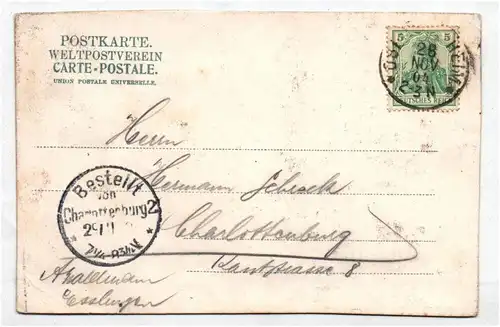 POSTKARTE.
WELTPOSTVEREIN
CARTE-POSTALE.
UNION POSTALE UNIVERSELLE.
5 5
28
NOV
04
2-3N
DEUTSCHES REICH
Herrn
Hermann
Charlottenburg
Kantstrasse 8
Bestellt
von
Charlottenburg 2
29
Esslingen